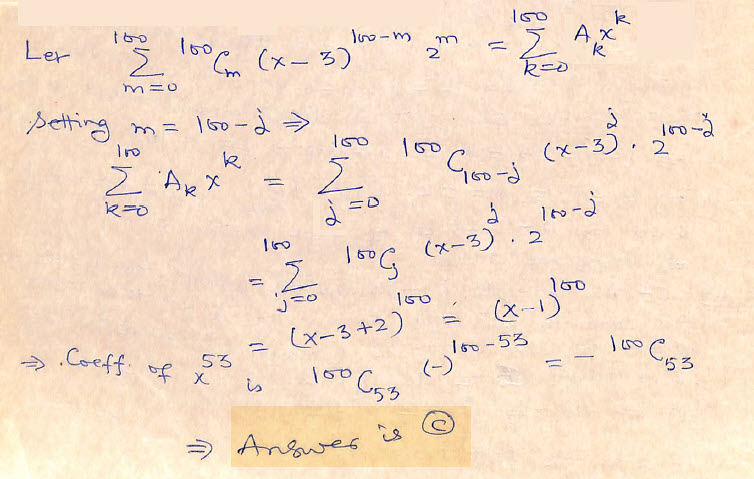 Let \sum_{m=0}^{100} {}^{100}C_m (x-3)^{100-m} 2^m = \sum_{k=0}^{100} A_k x^k
Setting m = 100-j ⇒
\sum_{k=0}^{100} A_k x^k = \sum_{j=0}^{100} {}^{100}C_{100-j} (x-3)^j . 2^{100-j}
= \sum_{j=0}^{100} {}^{100}C_j (x-3)^j . 2^{100-j}
= (x-3+2)^{100} = (x-1)^{100}
⇒ Coeff. of x^{53} is {}^{100}C_{53} (-)^{100-53} = - {}^{100}C_{53}
⇒ Answer is ⓒ